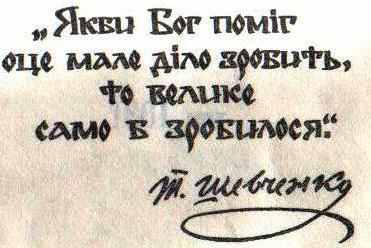 „Якби Бог поміг
оце мале діло зробить,
то велике
само б зробилося.“
Т. Шевченко